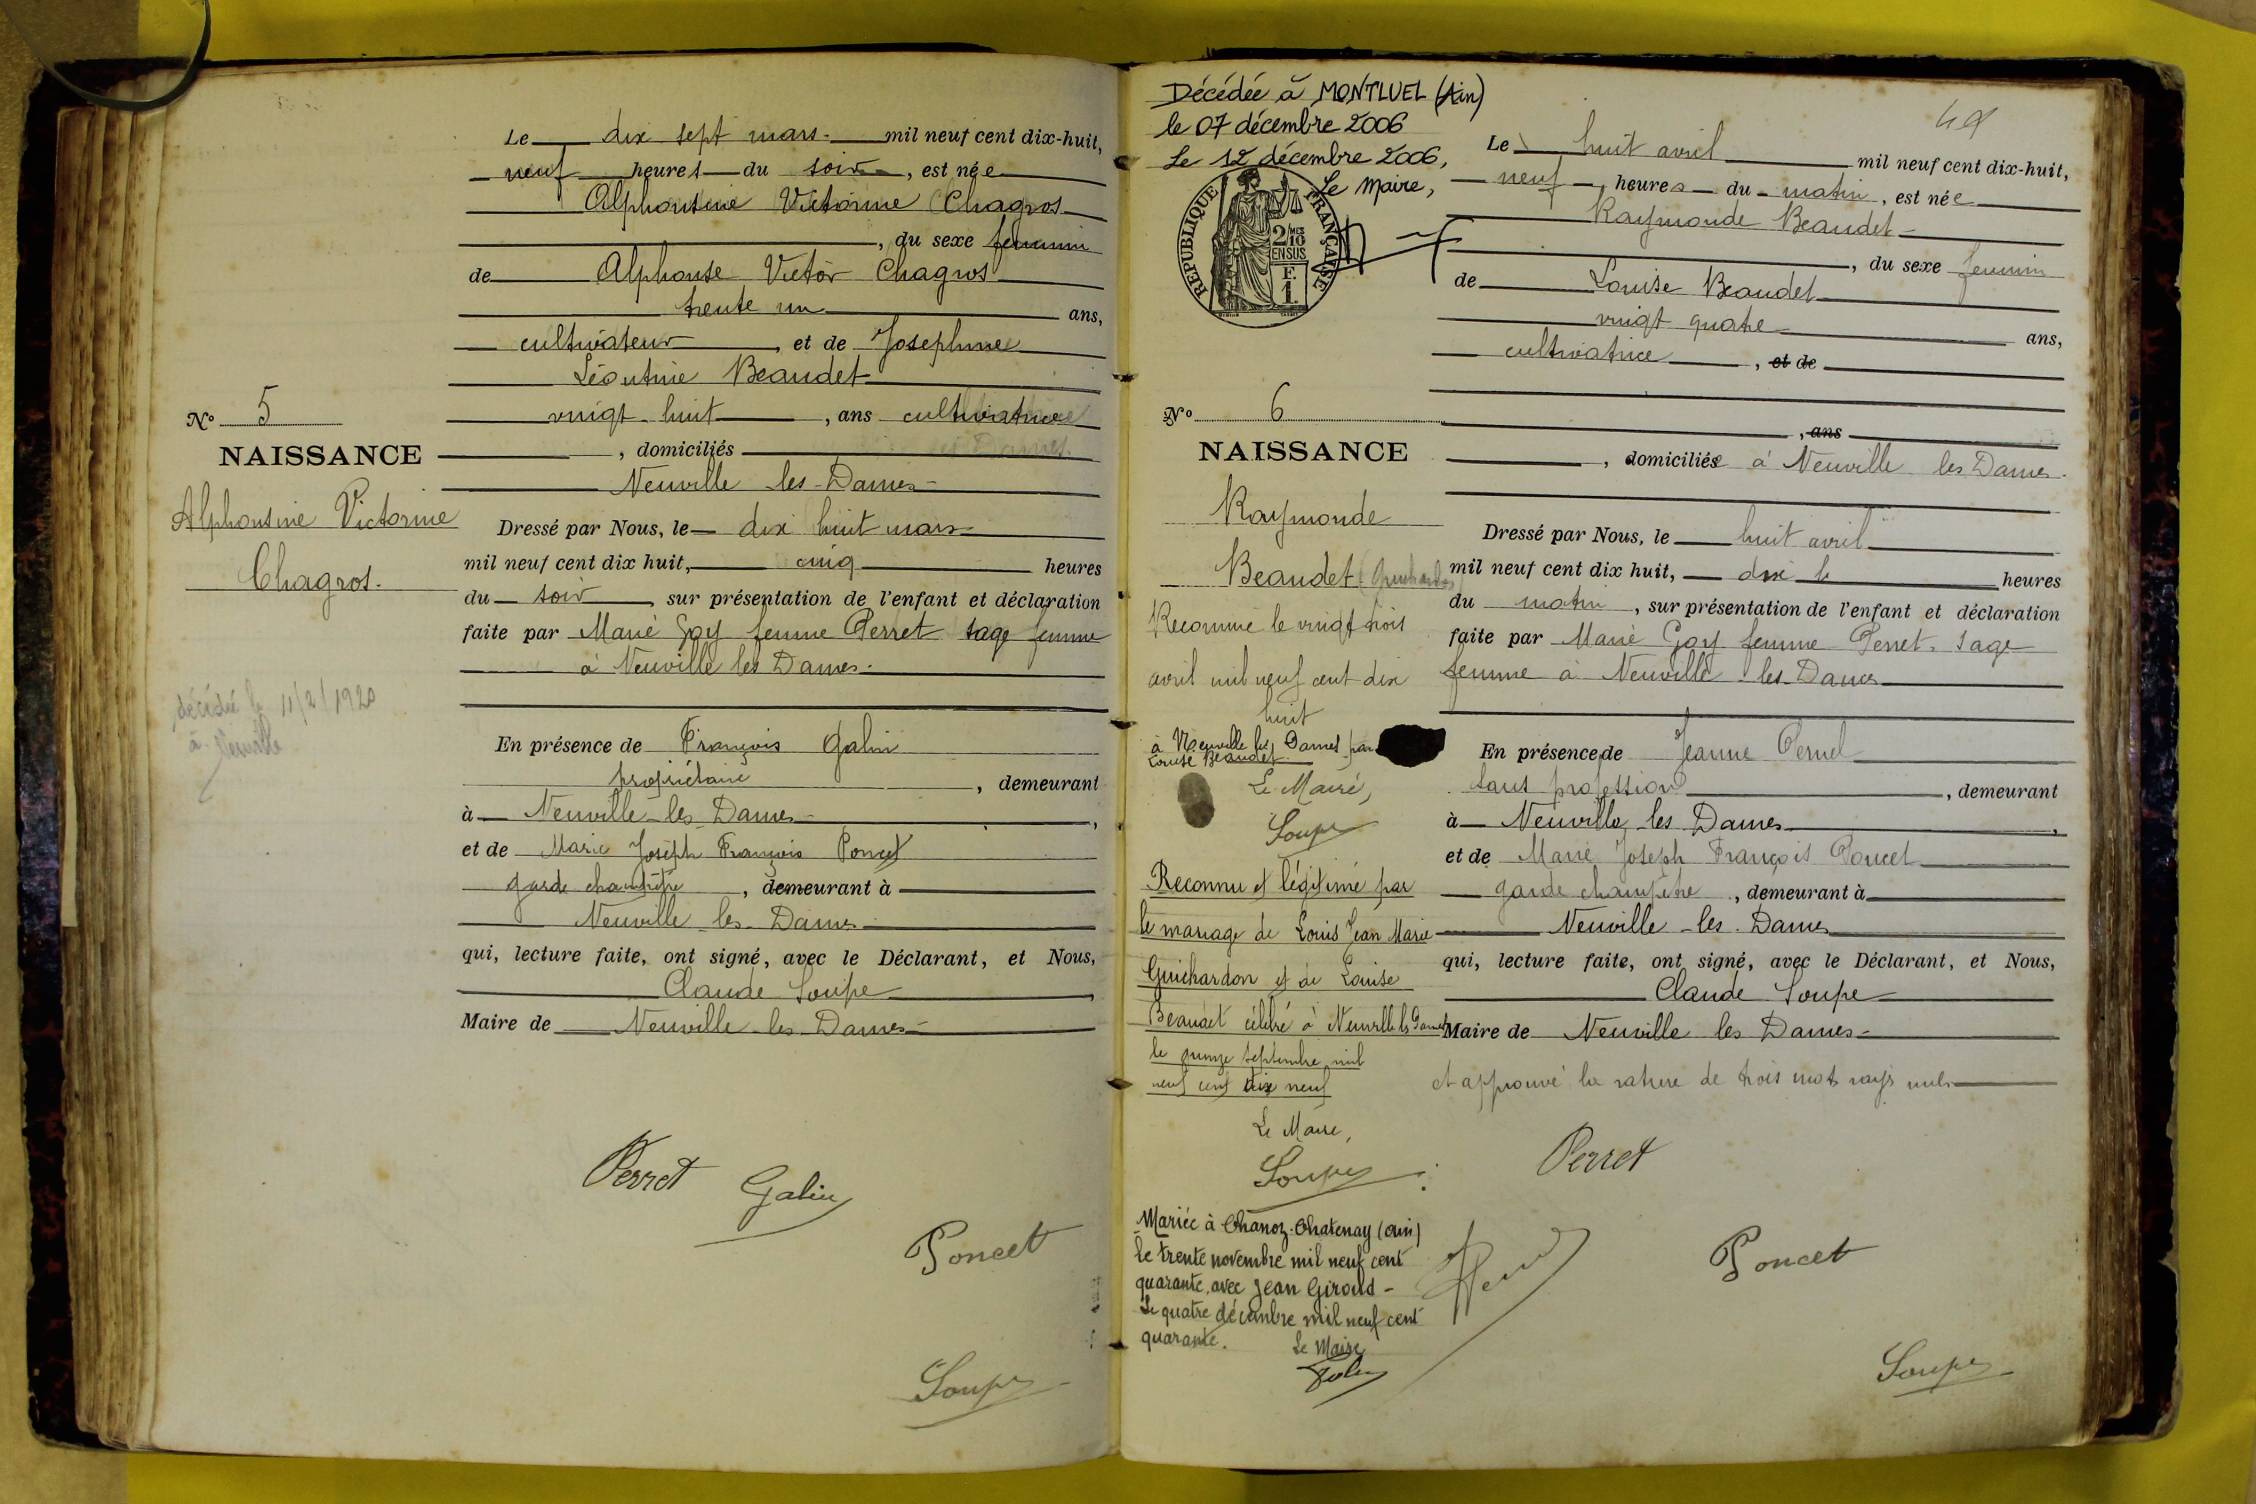 Le dix sept mars mil neuf cent dix-huit,
neuf heures du soir, est née
Alphontine Victorine Chagros
, du sexe feminin
de Alphonse Victor Chagros
trente un ans,
cultivateur, et de Josephine
Léontine Beaudet
vingt huit, ans cultivatrice
, domiciliés
Neuville les Dames
N° 5
NAISSANCE
Alphontine Victorine
Chagros.
décédé le 11/2/1920
à Neuville
Dressé par Nous, le dix huit mars
mil neuf cent dix huit, cinq heures
du soir, sur présentation de l'enfant et déclaration
faite par Marie Goy femme Perret sage femme
à Neuville les Dames.
En présence de François Galin
propriétaire, demeurant
à Neuville les Dames,
et de Marie Joseph François Poncet
garde champêtre, demeurant à
Neuville les Dames
qui, lecture faite, ont signé, avec le Déclarant, et Nous,
Claude Soupe,
Maire de Neuville les Dames
Perret Galin
Poncet
Soupe
Décédée à MONTLUEL (Ain)
le 07 décembre 2006
Le 12 décembre 2006,
Le Maire,
REPUBLIQUE FRANÇAISE
2/10 MES
EN SUS
F.
1.
N° 6
NAISSANCE
Raymonde
Beaudet (Guichardon)
Reconnue le vingt trois
avril mil neuf cent dix
huit
à Neuville les Dames par
Louise Beaudet.
Le Maire,
Soupe
Reconnu et légitimé par
le mariage de Louis Jean Marie
Guichardon et de Louise
Beaudet célébré à Neuville les Dames
le quinze septembre mil
neuf cent dix neuf
Le Maire,
Soupe
Mariée à Chanoz-Chatenay (Ain)
le trente novembre mil neuf cent
quarante, avec Jean Giroud -
Le quatre décembre mil neuf cent
quarante. Le Maire
49
Le huit avril mil neuf cent dix-huit,
neuf, heures du matin, est née
Raymonde Beaudet
, du sexe feminin
de Louise Beaudet
vingt quatre ans,
cultivatrice, et de
, ans
, domiciliée à Neuville les Dames.
Dressé par Nous, le huit avril
mil neuf cent dix huit, dix h heures
du matin, sur présentation de l'enfant et déclaration
faite par Marie Goy femme Perret, sage
femme à Neuville les Dames
En présence de Jeanne
sans profession, demeurant
à Neuville les Dames,
et de Marie Joseph François Poncet
garde champêtre, demeurant à
Neuville les Dames
qui, lecture faite, ont signé, avec le Déclarant, et Nous,
Claude Soupe
Maire de Neuville les Dames
et approuvé la rature de trois mots rayés nuls
Perret
Poncet
Soupe